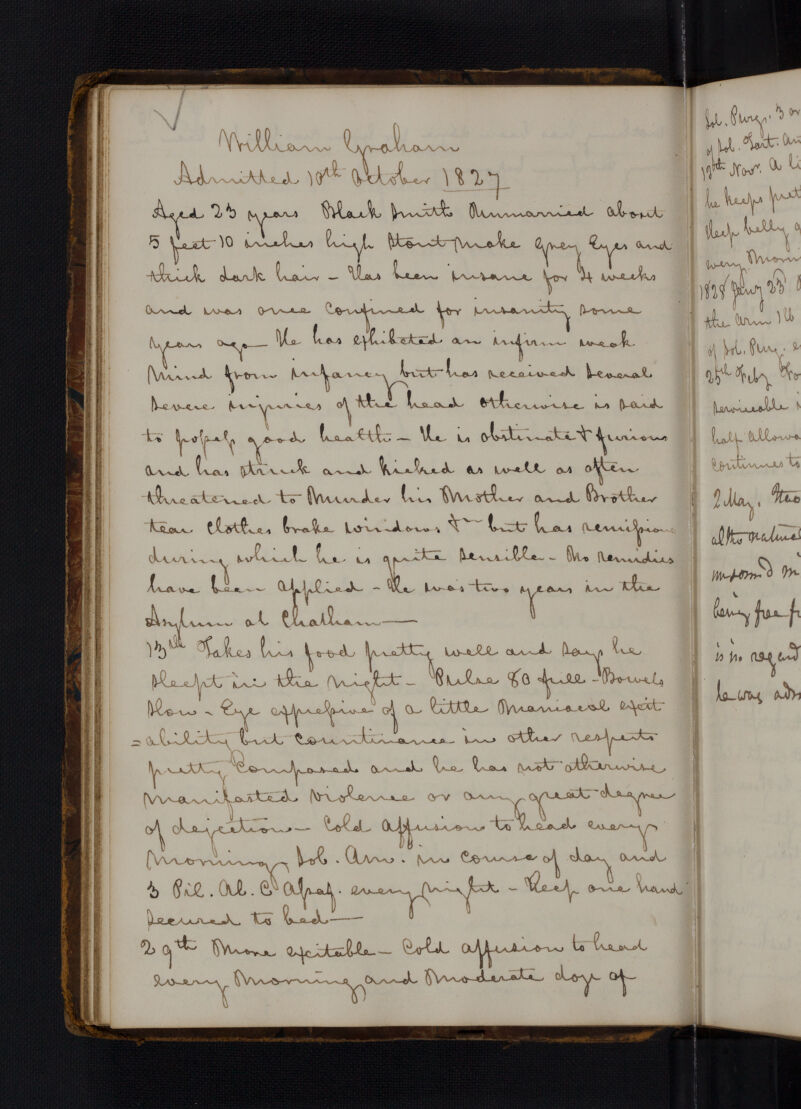 William Graham
Admitted 10th October 1827
Aged 23 years Black Smith Unmarried about
5 feet 10 inches high Stout make Grey Eyes and
thick dark hair – Has been insane for 4 weeks
and was once Confined for insanity some
years ago – He has exhibited an infirm weak
Mind from infancy but has received several
severe injuries of the head otherwise is said
to possess good health – He is obstinate & furious
and has struck and kicked as well as often
threatened to Murder his Mother and Brother
tear Clothes brake windows &c but has remissions
during which he is quite sensible – No remidies
have been applied – He was two years in the
Asylum at Chatham —
13th Takes his food pretty well and says he
sleept in the night – Pulse 80 full – Bowels
slow – Eye expressive of a little Maniacal excit
=ability but countinance in other respects
pretty Composed and he has not otherwise
Manifasted violence or any great degree
of dejection – Cold Affusion to head every
Morning, Sol. Am. in course of day and
3 Pil. Al. C Assaf. every night – Keep one hand
secured to bed —
29th More excitable – Cold affusion to head
every Morning and Moderate dose of
Sol. Purg. 3 or
of Sol. Tart. An
12th Novr. A li
he keeps pret
sleep belly
every Morn
1828 Jany 23d
the arm
of Sol. Purg.
25th Feby
serviceable
half allowa
continues to
2 May.
altho natural
being free f
is no regard
he was adm